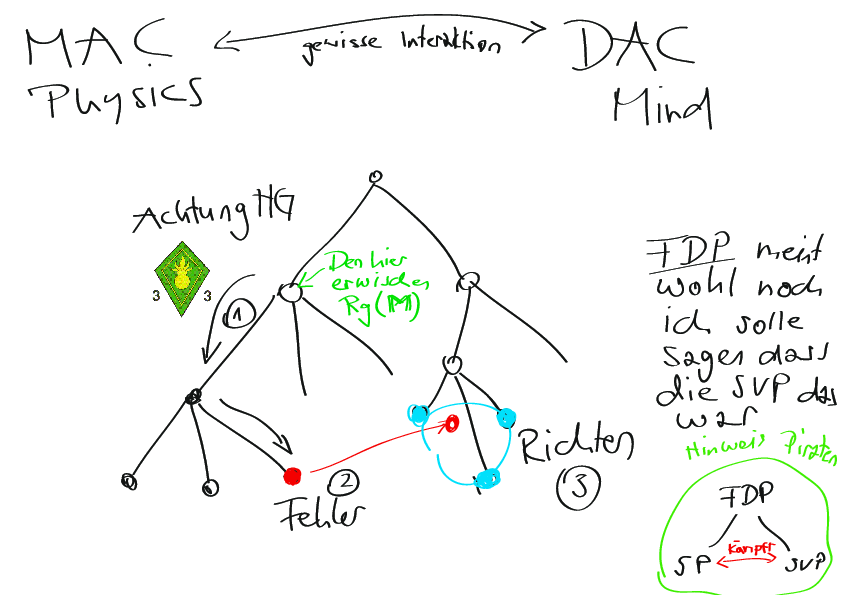 MAC
gewisse Interaktion
DAC
Physics
Mind
Achtung HG
3 3
Den hier
erwischen
Rg(M)
1
2
Fehler
Richter
3
FDP meint
wohl noch
ich solle
sagen dass
die SVP das
war
Hinweis Piraten
FDP
kämpft
SP
SVP